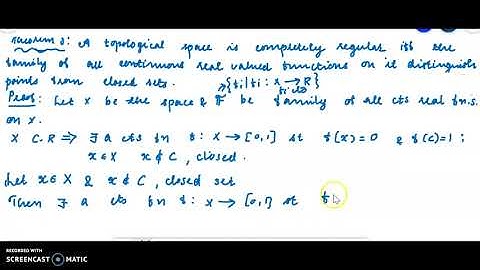 Theorem 3: A topological space is completely regular iff the
family of all continuous real valued functions on it distinguish
points from closed sets. {fi | fi : X → R}
fi cts
Proof: Let X be the space & F be family of all cts real fn.s.
on X.
X C.R ⇒ ∃ a cts fn f: X → [0,1] st f(x)=0 & f(C)=1 ;
x∈X x∉C, closed.
Let x∈X & x∉C, closed set
Then ∃ a cts fn f: X → [0,1] st f
RECORDED WITH
SCREENCAST MATIC